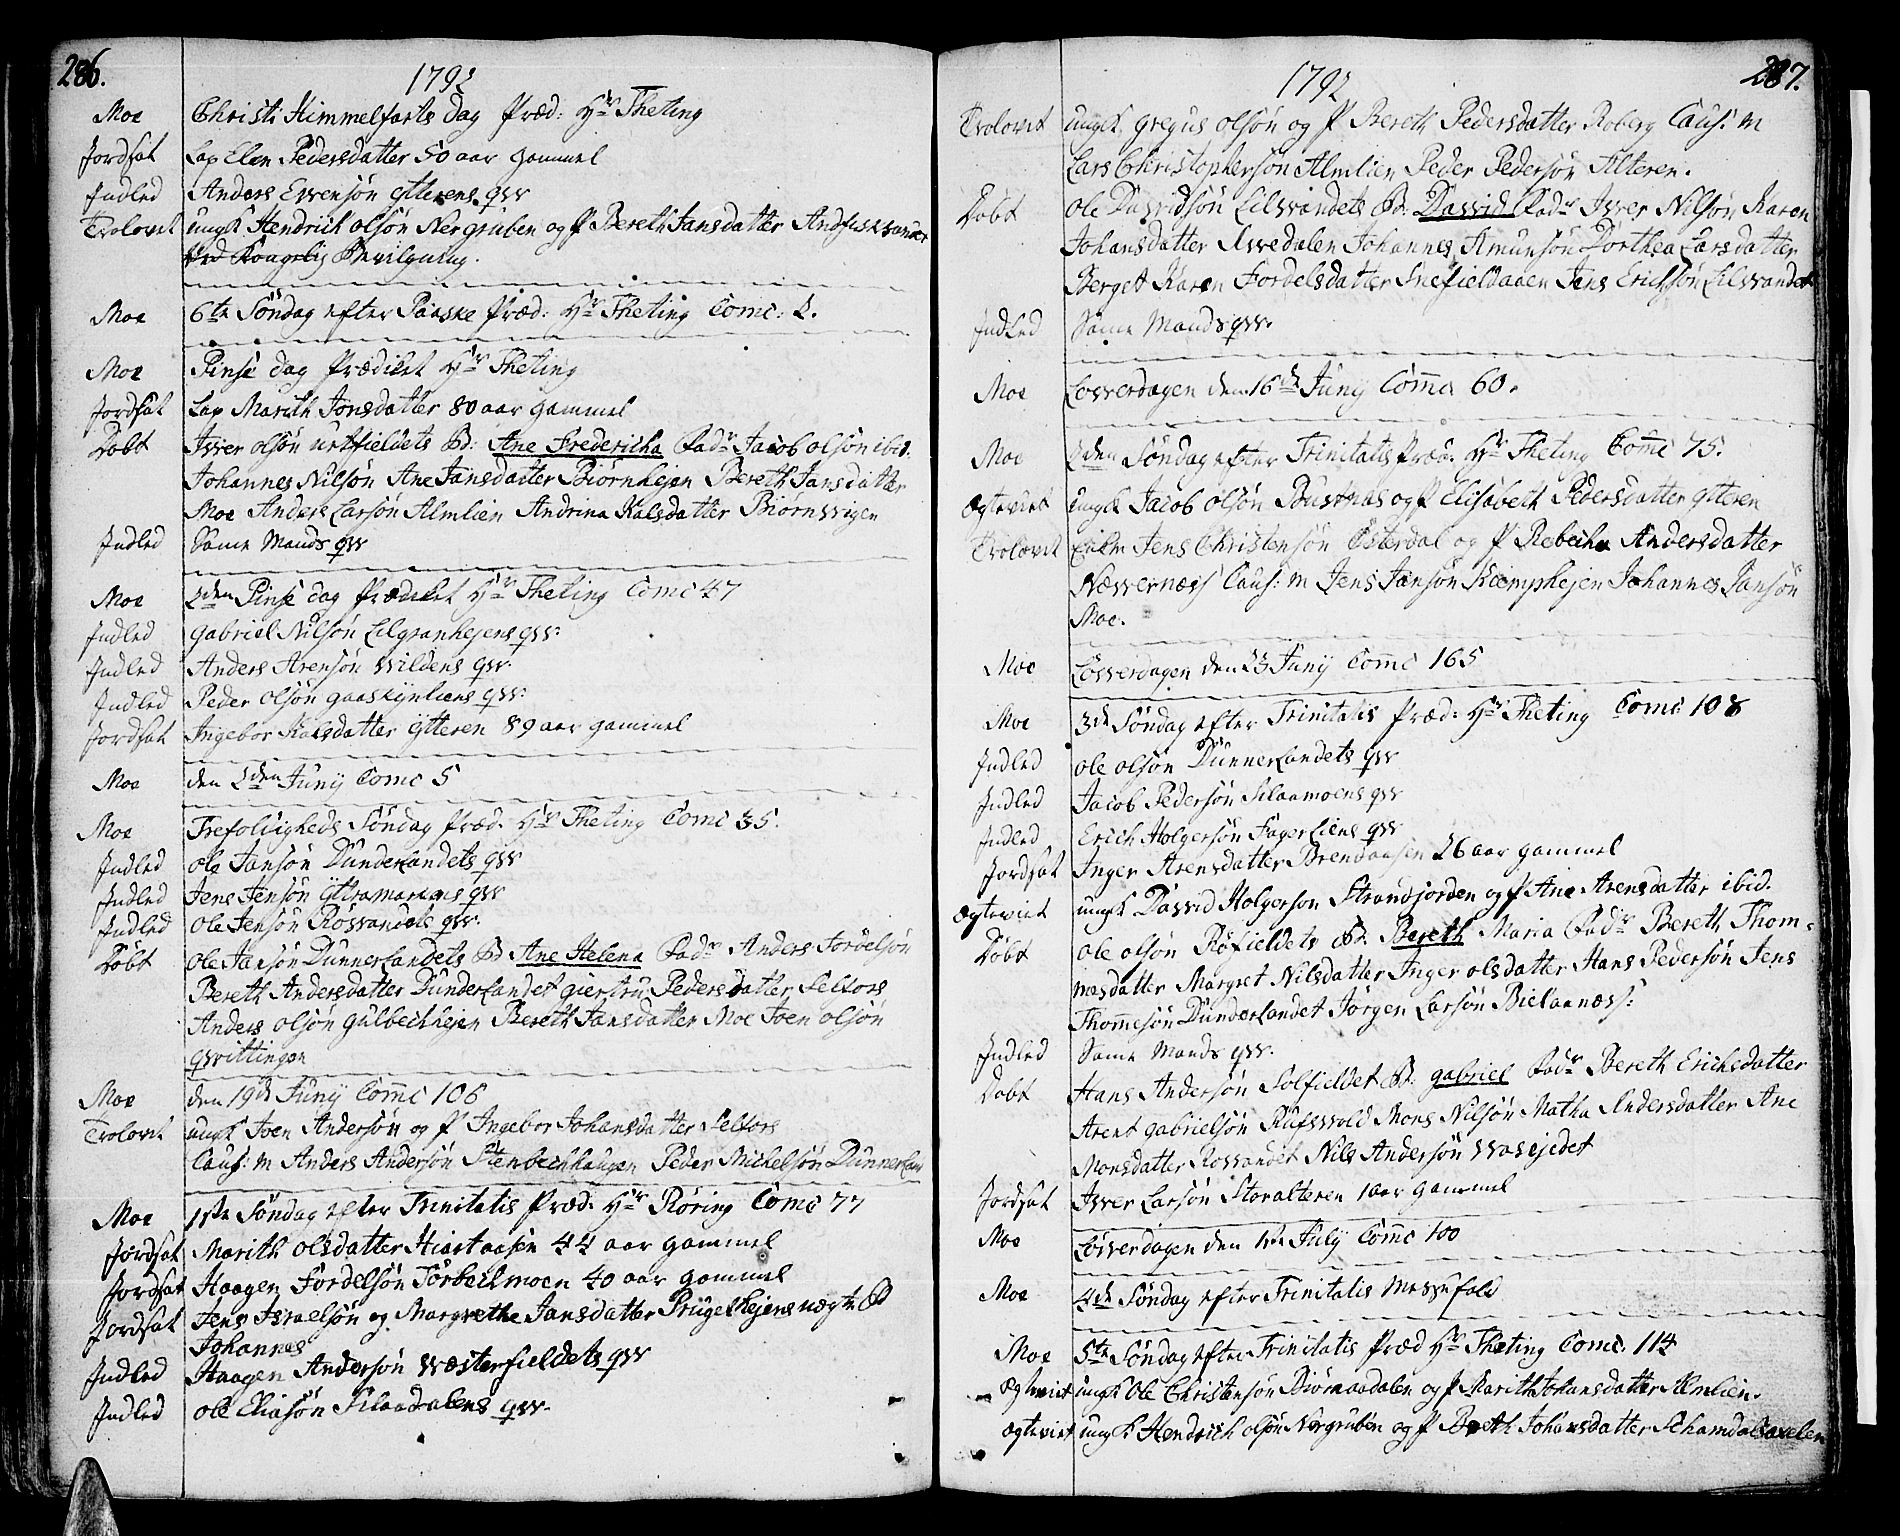 286.
1792
Moe Christi Himmelfarts Dag Præd: Hr Theting
Jordsat Lap Elen Pedersdatter 50 aar gammel
Indled Anders Evensön Ytterens qvv
Trolovet ungk Hendrich olsön Nergruben og P Bereth Jansdatter
Ved Kongelig Bevilgning.
Moe 6te Söndag efter Paaske Præd: Hr Theting Comc: 2.
Moe Pinse dag Prædiket Hr Theting
Jordsat Lap Marith Jonsdatter 80 aar gammel
Döbt Iver olsön urtfieldets Bd: Ane Fredericha Fadr Jacob olsön ibid.
Johannes Nilsön Ane Jansdatter Biörnhejen Bereth Jansdatter
Moe Anders Larsön Almlien Andrina Kalsdatter Biörnvigen
Indled Same Mands qvv
Moe 2den Pinse dag Prædeket Hr Theting Comc 47
Indled Gabriel Nilsön Lilgranhejens qvv:
Indled Anders Arensön Vildens qvv.
Indled Peder olsön gaaskynliens qvv:
Jordsat Ingebor Kalsdatter Ytteren 89 aar gammel
Moe den 2den Junij Comc 5
Moe Trefoldigheds Söndag Præd. Hr Theting Comc 35.
Indled ole Jansön Dunderlandets qvv
Indled Jens Jensön qvv
Indled ole Jensön Rösvandets qvv.
Döbt Ole Jansön Dunnerlandets Bd Ane Helena Fadr Anders Fordelsön
Bereth Andersdatter Dunderlandet giertru Pedersdatter Selfors
Anders olsön gulbechhejen Bereth Jansdatter Moe Joen olsön
qvittingen
Moe den 19de Junij Comc 106
Trolovet ungk Joen Andersön og P Ingebor Johansdatter Selfors
Caus: m Anders Andersön Stenbechhaugen Peder Michelsön Dunnerland
Moe 1ste Söndag efter Trinitatis Præd: Hr Röring Comc 77
Jordsat Marith olsdatter Hiartaasen 44 aar gammel
Jordsat Haagen Fordelsön Törbechmoen 40 aar gammel
Jordsat Jens Israelsön og Margrethe Jansdatter Prügelhejens uægte B
Johannes
Indled Haagen Andersön Vesterfieldets qvv
Indled ole Eliasön Silaadalens qvv.
287.
1792
Trolovet ungk gregus olsön og P Bereth Pedersdatter Roberg Caus: m
Lars Christophersön Almlien Peder Pedersön Alteren.
Döbt ole Davidsön Lilvandets Bd: David Fadr Iver Nilsön Karen
Johansdatter Johannes Amunsön Dorthea Larsdatter
Berget Karen Fordelsdatter Snefieldaaen Jens Erichsön Lilvandet
Indled Same Mands qvv.
Moe Löverdagen den 16de Junij Comc 60.
Moe 2den Söndag efter Trinitatis Præd: Hr Theting Comc 75.
Ægteviet ungk Jacob olsön Bustnes og P Elisabeth Pedersdatter Ytteren
Trolovet Jens Christensön Österdal og P Rebecha Andersdatter
Nævernæs Caus: m Jens Jansön Kæmphejen Johannes Jansön
Moe.
Moe Löverdagen den 23 Junij Comc 165
Moe 3de Söndag efter Trinitatis Præd: Hr Theting Comc 108
Indled ole olsön Dunnerlandets qvv
Indled Jacob Pedersön Silaamoens qvv
Indled Erich Holgersön Fagerliens qvv
Jordsat Inger Arensdatter Brendaasen 26 aar gammel
Ægteviet ungk David Holgerson Strandjorden og P Ane Arensdatter ibid.
Döbt ole olsön Röfieldets Bd. Bereth Maria Fadr Bereth Thom-
masdatter Margret Nilsdatter Inger olsdatter Hans Pedersön Jens
Thommesön Dunderlandet Jörgen Larsön Bielaanæss:
Indled Same Mands qvv.
Döbt Hans Andersön Solfieldet B: gabriel Fadr Bereth Erichsdatter
Arent gabrielsön Rufsvold Mons Nilsön Matha Andersdatter Ane
Monsdatter Rosvandet Nils Andersön
Jordsat Iver Larsön Storalteren 1 aar gammel
Moe Löverdagen den 1ste July Comc 100
Moe 4de Söndag efter Trinitatis Messefald
Moe 5te Söndag efter Trinitatis Præd Hr Theting Comc. 114
Ægteviet ungk Ole Christensön Biörnaadalen og P Marith Johansdatter Almlien.
Ægteviet ungk Hendrich olsön Nergruben og P Bereth Johansdatter